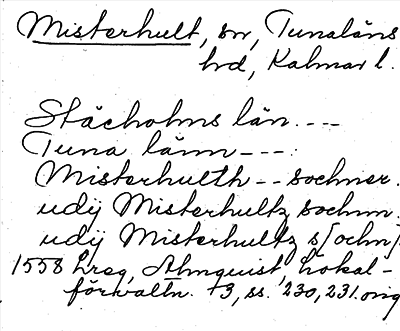 Misterhult, sn, Tunaläns
hd, Kalmar l.
Stächolms län. ---
Tuna länn ---.
Misterhulth -- sochner.
udÿ Misterhultz sochnn.
udÿ Misterhultz s[ochn].
1558 Lreg, Almquist, Lokal-
förvaltn. +3, ss. 230, 231. orig